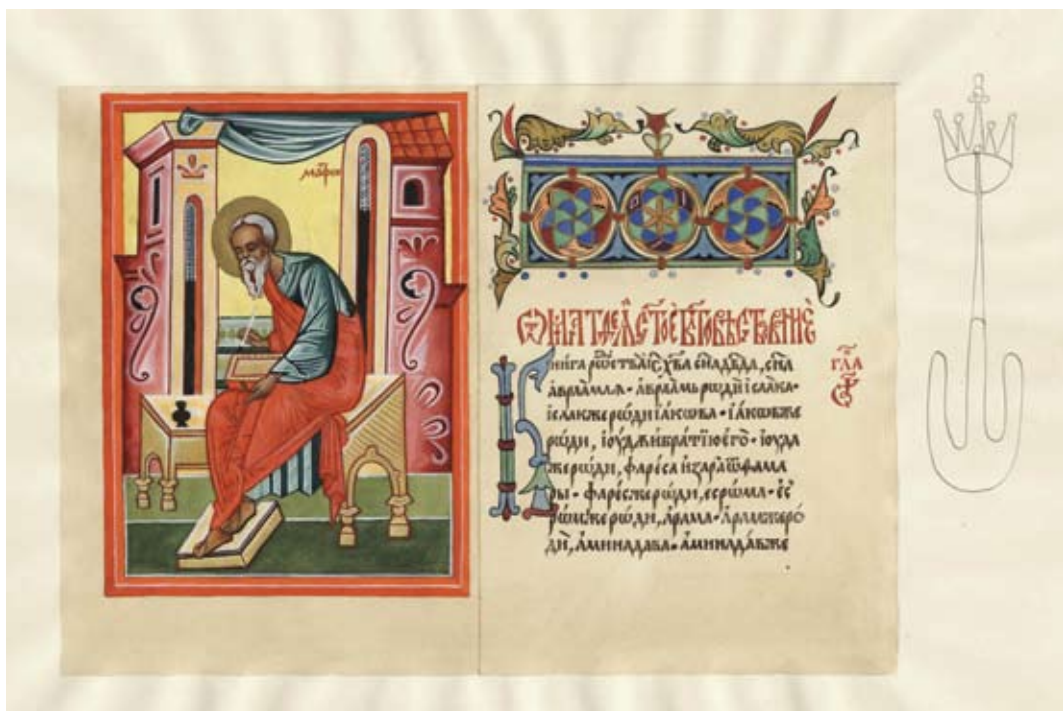 Ѿ матѳеѧ ст҃ое бл҃говѣствованїе
Книга рѡⷤтва і҆с х҃ва сн҃а дв҃да, сн҃а
авраамлѧ · авраамь рѡди ісаака ·
ісаакже рѡди іакѡва · іакѡвже
рѡди, іоудꙋ и братїю его · іоуда
же рѡди, фареса и зара ѿ фама
ры · фаресже рѡди, есрѡма · ес
рѡмже рѡди, арама · арамже ро
ди, аминадава · аминадавже
гл҃а